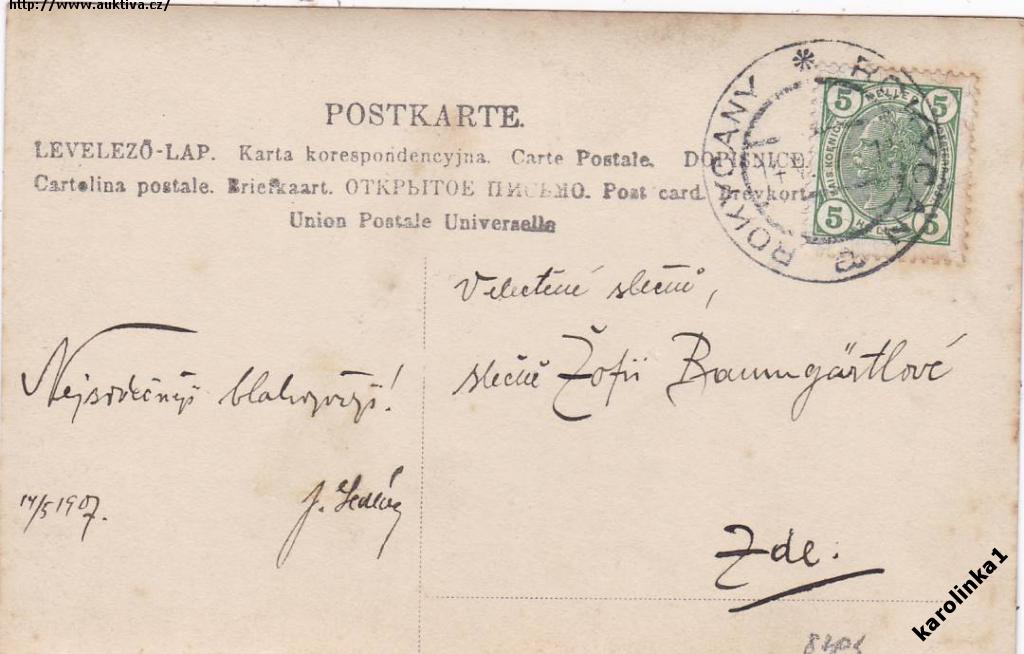 http://www.auktiva.cz/
POSTKARTE.
LEVELEZŐ-LAP. Karta korespondencyjna. Carte Postale. DOPISNICE.
Cartolina postale. Briefkaart. ОТКРЫТОЕ ПИСЬМО. Post card. Brevkort
Union Postale Universelle
ROKYCANY * ROKYCAN
5 HELLER 5
5 5
Velectěné slečně,
slečně Žofii Baumgärtlové
Nejsrdečněji blahopřeji!
14/5 1907.
J.
Zde.
karolinka1